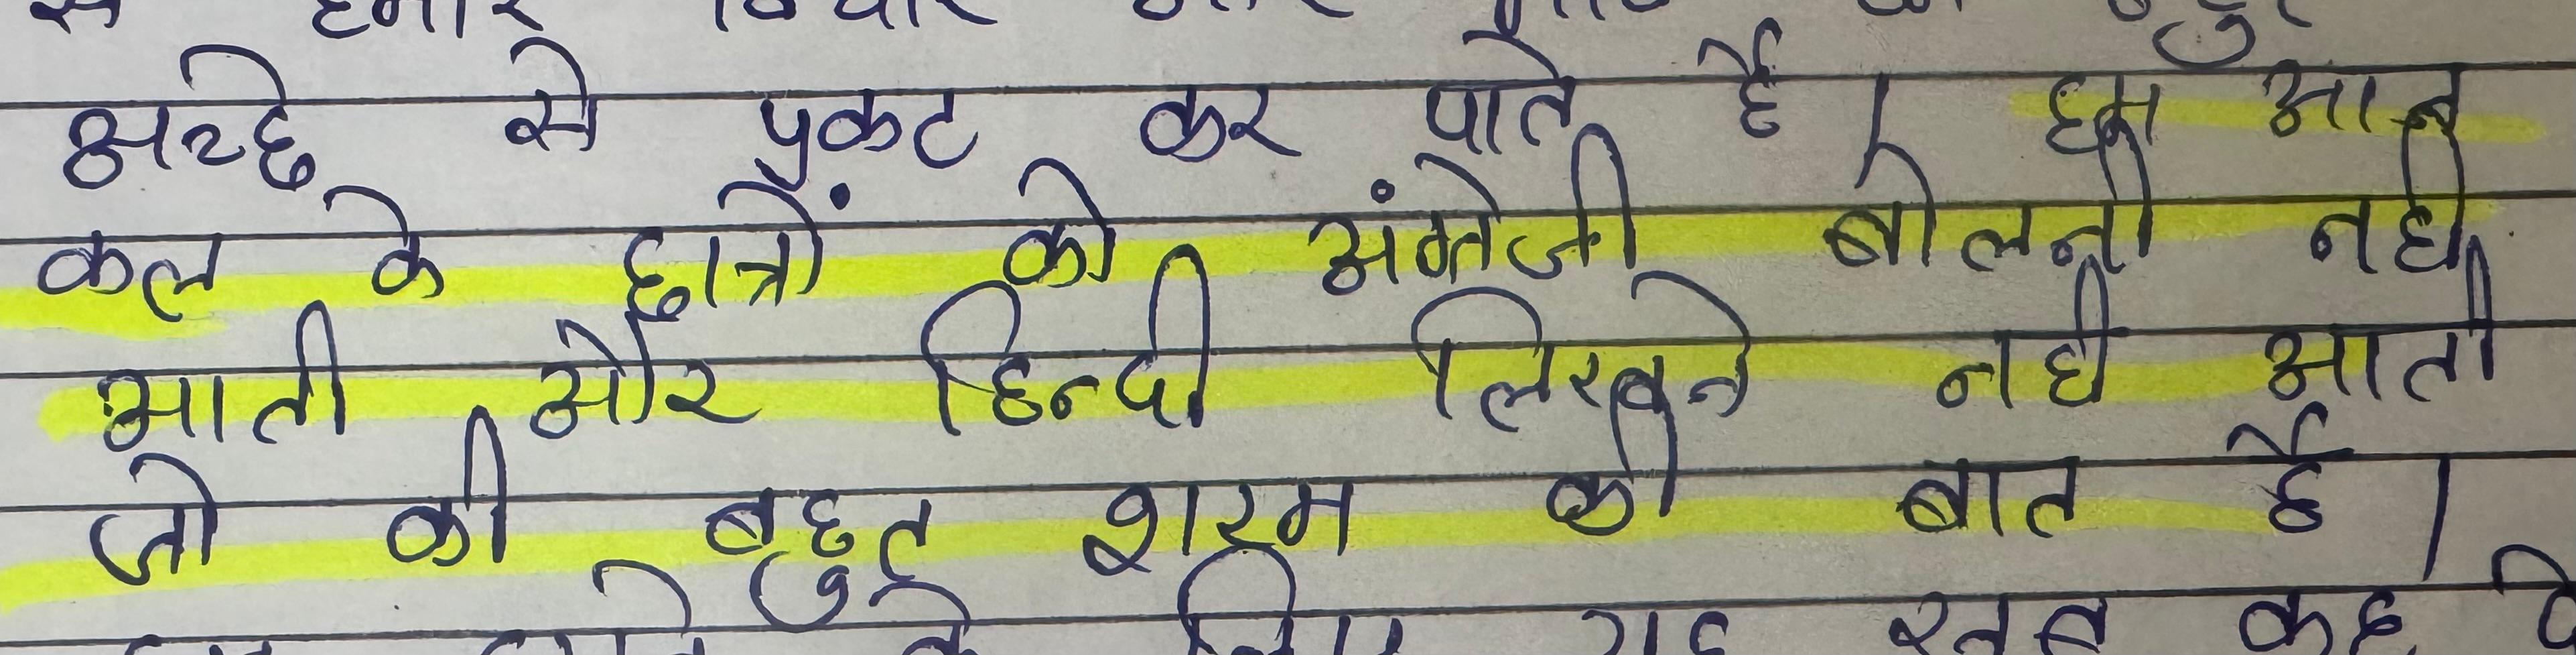 से हमारे विचार और
अच्छे से प्रकट कर पाते है। हम आज
कल के छात्रों को अंग्रेजी बोलनी नही
आती और हिन्दी लिखने नही आती
जो की बहुत शरम की बात है।
के लिए यह सब कह